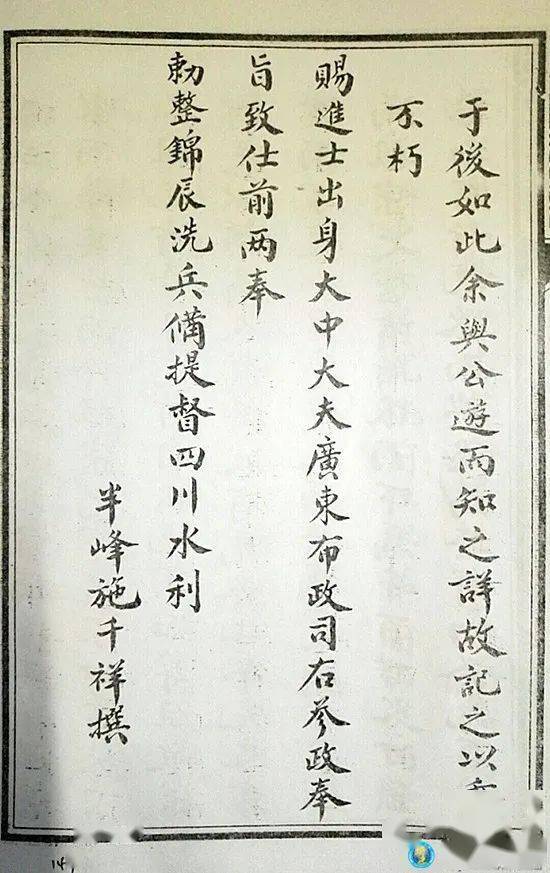 于後如此余與公遊而知之詳故記之以
不朽
賜進士出身大中大夫廣東布政司右叅政奉
旨致仕前两奉
勅整錦辰洗兵備提督四川水利
半峰施千祥撰
14